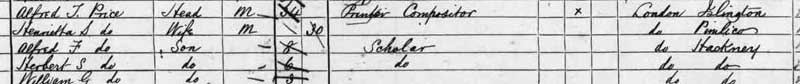 Alfred T. Price Head M 34 Printer Compositor x London Islington
Henrietta S do Wife M 30 do Pimlico
Alfred F do Son 8 Scholar do Hackney
Herbert S do do 6 do do do
William G do do 3 do do